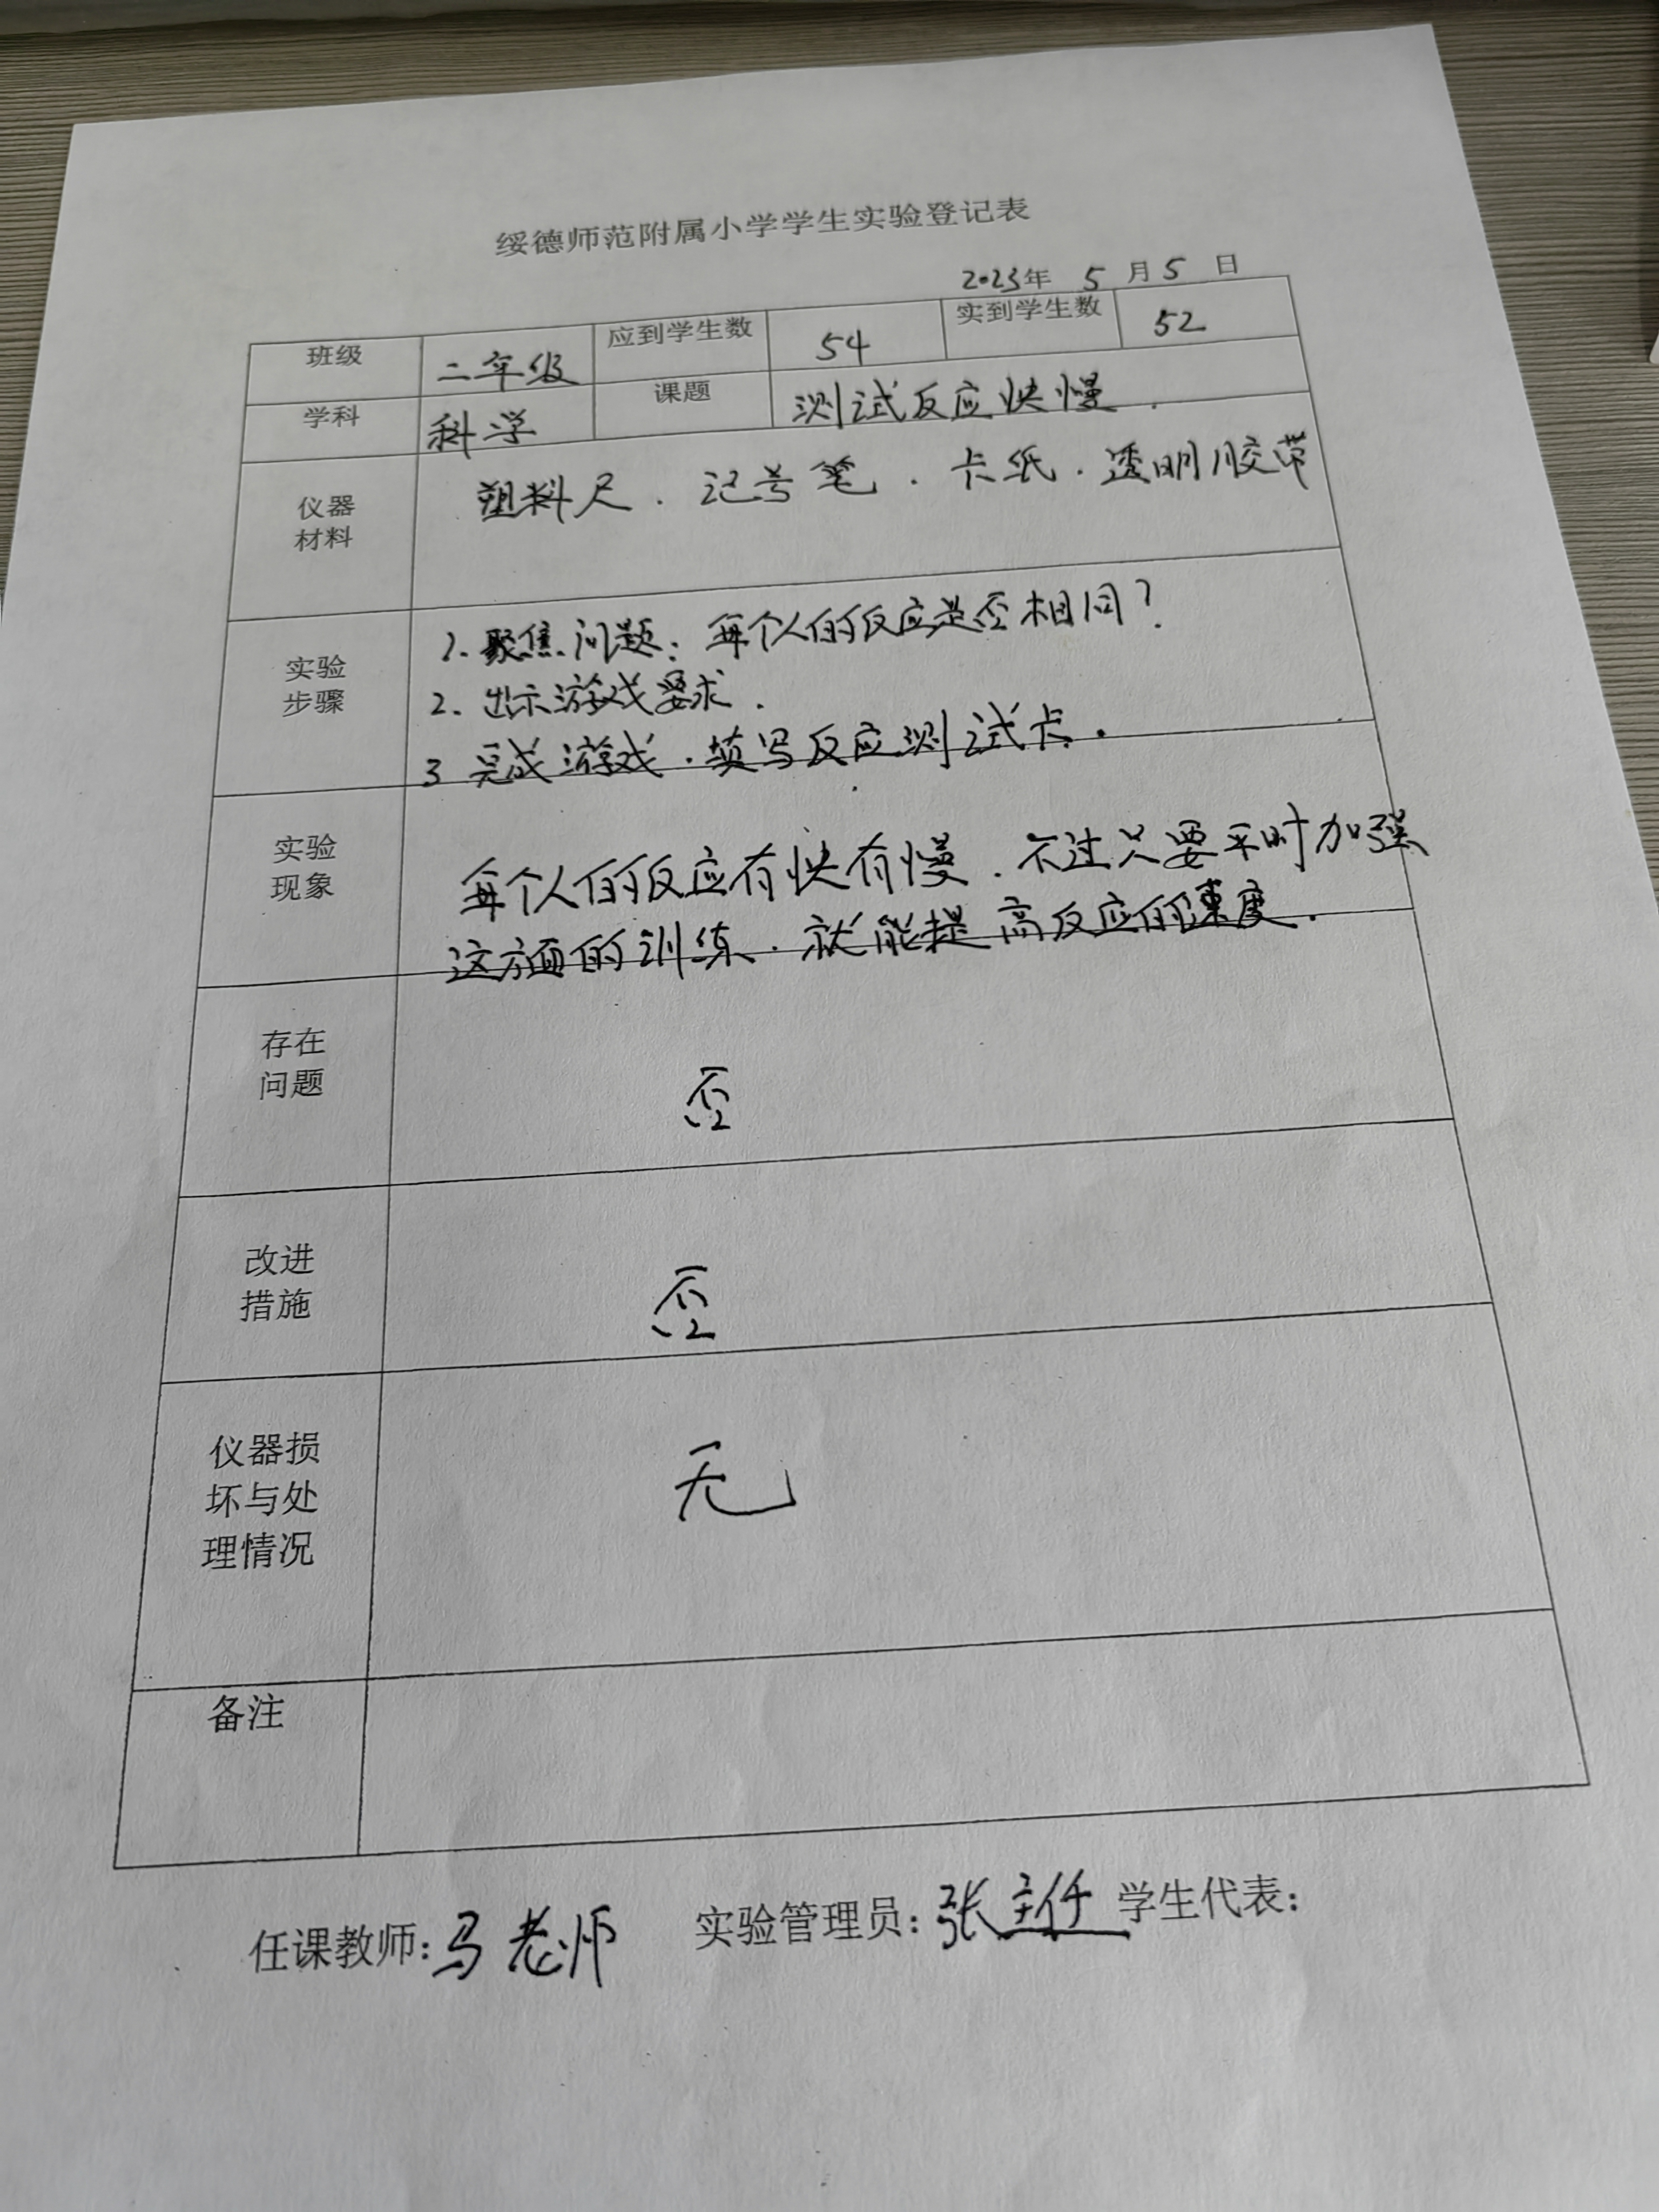 绥德师范附属小学学生实验登记表
2023年 5 月 5 日
班级 二年级 应到学生数 54 实到学生数 52
学科 科学 课题 测试反应快慢.
仪器
材料
塑料尺.记号笔.卡纸.透明胶带
实验
步骤
1.聚焦问题:每个人的反应是否相同?
2.出示游戏要求.
3 完成游戏.填写反应测试卡.
实验
现象
每个人的反应有快有慢.不过只要平时加强
这方面的训练.就能提高反应的速度.
存在
问题
否
改进
措施
否
仪器损
坏与处
理情况
无
备注
任课教师:马老师 实验管理员:张主任 学生代表: